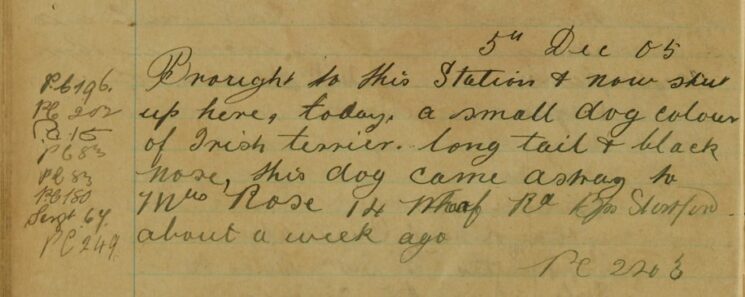 5th Dec 05
Brought to this Station & now shut
up here, today, a small dog colour
of Irish terrier. long tail & black
nose, this dog came astray to
Mrs Rose 14 Wharf Rd Bps Stortford.
about a week ago
PC 220 E
PC 196.
PC 202
PC 83
PC 83
PC 150
Sergt 67.
PC 249.